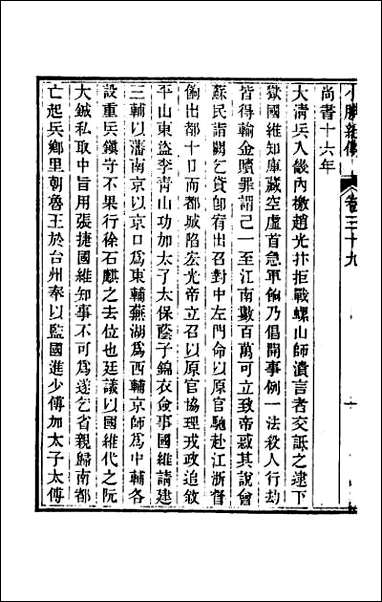 小腆紀傳 卷三十九
尚書十六年
大清兵入畿內檄趙光抃拒戰螺山師潰言者交詆之逮下
獄國維知庫藏空虛首急軍餉乃倡開事例一法殺人行劫
皆得輸金贖罪謂己一至江南數百萬可立致帝惑其說會
蘇民詣闕乞貸卹宥出召對中左門命以原官馳赴江浙督
餉出都十日而都城陷宏光帝立召以原官協理戎政追敘
平山東盜李青山功加太子太保蔭子錦衣僉事國維請建
三輔以藩南京以京口爲東輔蕪湖爲西輔京師爲中輔各
設重兵鎮守不果行徐石麒之去位也廷議以國維代之阮
大鋮私取中旨用張捷國維知事不可爲遂乞省親歸南都
亡起兵鄉里朝魯王於台州奉以監國進少傅加太子太傅